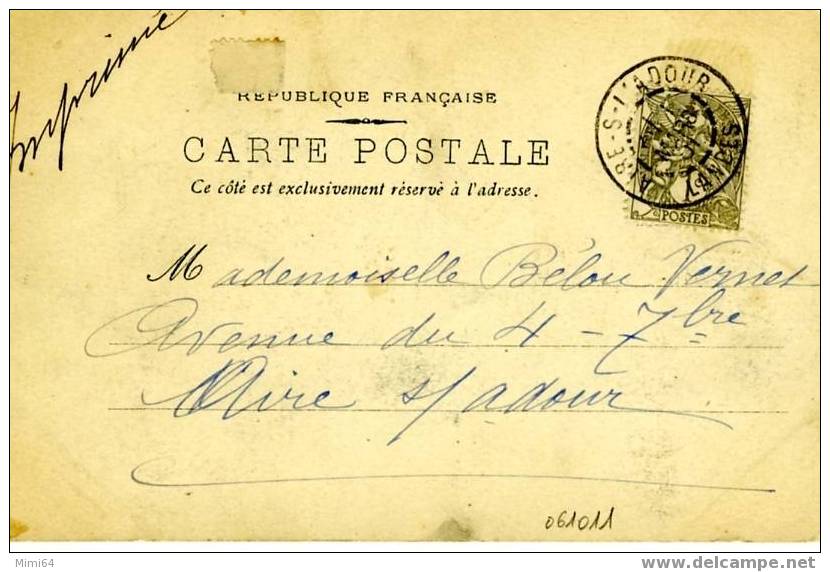 Imprimé
REPUBLIQUE FRANÇAISE
CARTE POSTALE
Ce côté est exclusivement réservé à l'adresse.
AIRE-S-L'ADOUR
LANDES
POSTES
Mademoiselle Bélou Vernet
Avenue du 4 - 7bre
Aire s/adour
061011
Mimi64
www.delcampe.net